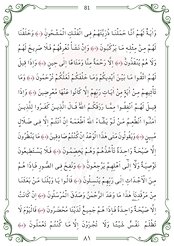 81
وَءَايَةٌ لَّهُمْ أَنَّا حَمَلْنَا ذُرِّيَّتَهُمْ فِي الْفُلْكِ الْمَشْحُونِ ﴿٤١﴾ وَخَلَقْنَا
لَهُم مِّن مِّثْلِهِ مَا يَرْكَبُونَ ﴿٤٢﴾ وَإِن نَّشَأْ نُغْرِقْهُمْ فَلَا صَرِيخَ لَهُمْ
وَلَا هُمْ يُنقَذُونَ ﴿٤٣﴾ إِلَّا رَحْمَةً مِّنَّا وَمَتَاعًا إِلَى حِينٍ ﴿٤٤﴾ وَإِذَا قِيلَ
لَهُمُ اتَّقُوا مَا بَيْنَ أَيْدِيكُمْ وَمَا خَلْفَكُمْ لَعَلَّكُمْ تُرْحَمُونَ ﴿٤٥﴾ وَمَا
تَأْتِيهِم مِّنْ ءَايَةٍ مِّنْ ءَايَاتِ رَبِّهِمْ إِلَّا كَانُوا عَنْهَا مُعْرِضِينَ ﴿٤٦﴾ وَإِذَا
قِيلَ لَهُمْ أَنفِقُوا مِمَّا رَزَقَكُمُ اللَّهُ قَالَ الَّذِينَ كَفَرُوا لِلَّذِينَ
ءَامَنُوا أَنُطْعِمُ مَن لَّوْ يَشَاءُ اللَّهُ أَطْعَمَهُ إِنْ أَنتُمْ إِلَّا فِي ضَلَالٍ
مُّبِينٍ ﴿٤٧﴾ وَيَقُولُونَ مَتَى هَذَا الْوَعْدُ إِن كُنتُمْ صَادِقِينَ ﴿٤٨﴾ مَا يَنظُرُونَ
إِلَّا صَيْحَةً وَاحِدَةً تَأْخُذُهُمْ وَهُمْ يَخِصِّمُونَ ﴿٤٩﴾ فَلَا يَسْتَطِيعُونَ
تَوْصِيَةً وَلَا إِلَى أَهْلِهِمْ يَرْجِعُونَ ﴿٥٠﴾ وَنُفِخَ فِي الصُّورِ فَإِذَا هُم
مِّنَ الْأَجْدَاثِ إِلَى رَبِّهِمْ يَنسِلُونَ ﴿٥١﴾ قَالُوا يَا وَيْلَنَا مَن بَعَثَنَا
مِن مَّرْقَدِنَا هَذَا مَا وَعَدَ الرَّحْمَنُ وَصَدَقَ الْمُرْسَلُونَ ﴿٥٢﴾ إِن كَانَتْ
إِلَّا صَيْحَةً وَاحِدَةً فَإِذَا هُمْ جَمِيعٌ لَّدَيْنَا مُحْضَرُونَ ﴿٥٣﴾ فَالْيَوْمَ لَا
تُظْلَمُ نَفْسٌ شَيْئًا وَلَا تُجْزَوْنَ إِلَّا مَا كُنتُمْ تَعْمَلُونَ ﴿٥٤﴾
٨١